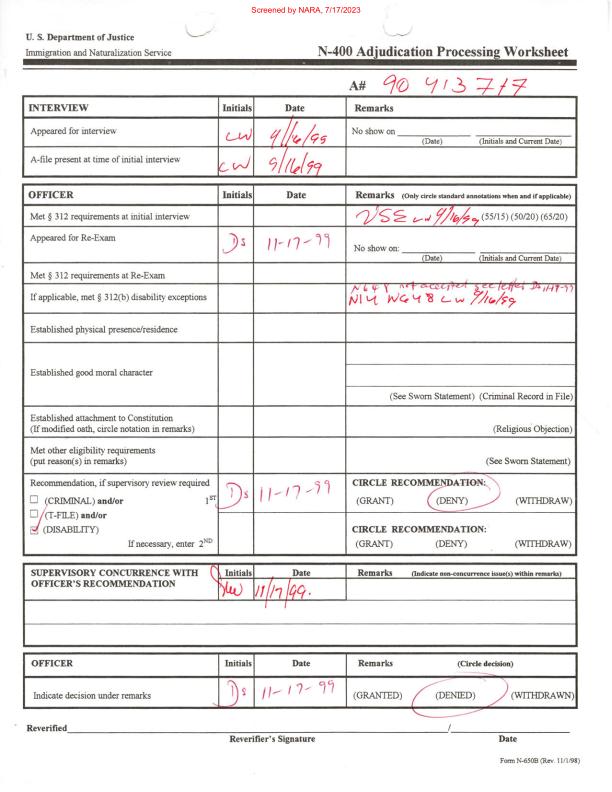 Screened by NARA, 7/17/2023
U. S. Department of Justice
Immigration and Naturalization Service
N-400 Adjudication Processing Worksheet
A# 90 413 717
INTERVIEW Initials Date Remarks
Appeared for interview CW 9/16/99 No show on
(Date) (Initials and Current Date)
A-file present at time of initial interview CW 9/16/99
OFFICER Initials Date Remarks (Only circle standard annotations when and if applicable)
Met § 312 requirements at initial interview 9/16/99 (55/15) (50/20) (65/20)
Appeared for Re-Exam Ds 11-17-99 No show on:
(Date) (Initials and Current Date)
Met § 312 requirements at Re-Exam
N648 not accepted see letter Ds 11-17-99
If applicable, met § 312(b) disability exceptions N14 W648 CW 9/16/99
Established physical presence/residence
Established good moral character
(See Sworn Statement) (Criminal Record in File)
Established attachment to Constitution
(If modified oath, circle notation in remarks) (Religious Objection)
Met other eligibility requirements
(put reason(s) in remarks) (See Sworn Statement)
Recommendation, if supervisory review required Ds 11-17-99 CIRCLE RECOMMENDATION:
(CRIMINAL) and/or 1ST (GRANT) (DENY) (WITHDRAW)
(T-FILE) and/or
(DISABILITY) CIRCLE RECOMMENDATION:
If necessary, enter 2ND (GRANT) (DENY) (WITHDRAW)
SUPERVISORY CONCURRENCE WITH Initials Date Remarks (Indicate non-concurrence issue(s) within remarks)
OFFICER'S RECOMMENDATION 11/17/99.
OFFICER Initials Date Remarks (Circle decision)
Indicate decision under remarks Ds 11-17-99 (GRANTED) (DENIED) (WITHDRAWN)
Reverified /
Reverifier's Signature Date
Form N-650B (Rev. 11/1/98)